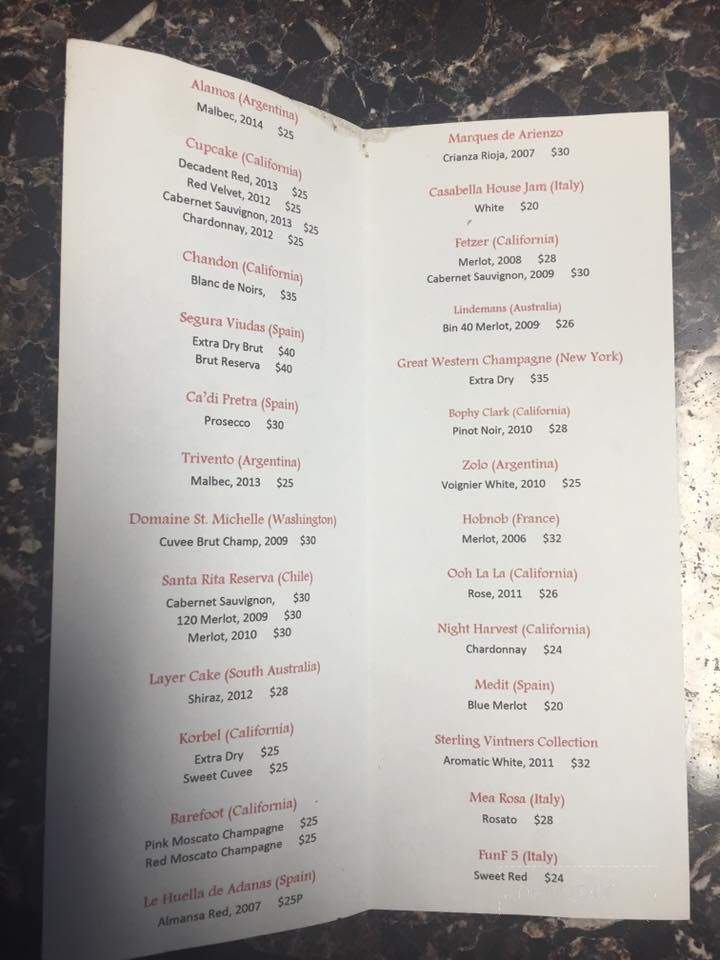 Alamos (Argentina)
Malbec, 2014 $25
Cupcake (California)
Decadent Red, 2013 $25
Red Velvet, 2012 $25
Cabernet Sauvignon, 2013 $25
Chardonnay, 2012 $25
Chandon (California)
Blanc de Noirs, $35
Segura Viudas (Spain)
Extra Dry Brut $40
Brut Reserva $40
Ca'di Pretra (Spain)
Prosecco $30
Trivento (Argentina)
Malbec, 2013 $25
Domaine St. Michelle (Washington)
Cuvee Brut Champ, 2009 $30
Santa Rita Reserva (Chile)
Cabernet Sauvignon, $30
120 Merlot, 2009 $30
Merlot, 2010 $30
Layer Cake (South Australia)
Shiraz, 2012 $28
Korbel (California)
Extra Dry $25
Sweet Cuvee $25
Barefoot (California)
Pink Moscato Champagne $25
Red Moscato Champagne $25
Le Huella de Adanas (Spain)
Almansa Red, 2007 $25P
Marques de Arienzo
Crianza Rioja, 2007 $30
Casabella House Jam (Italy)
White $20
Fetzer (California)
Merlot, 2008 $28
Cabernet Sauvignon, 2009 $30
Lindemans (Australia)
Bin 40 Merlot, 2009 $26
Great Western Champagne (New York)
Extra Dry $35
Bophy Clark (California)
Pinot Noir, 2010 $28
Zolo (Argentina)
Voignier White, 2010 $25
Hobnob (France)
Merlot, 2006 $32
Ooh La La (California)
Rose, 2011 $26
Night Harvest (California)
Chardonnay $24
Medit (Spain)
Blue Merlot $20
Sterling Vintners Collection
Aromatic White, 2011 $32
Mea Rosa (Italy)
Rosato $28
FunF 5 (Italy)
Sweet Red $24